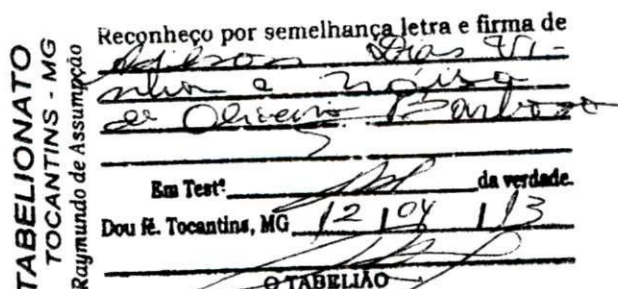 TABELIONATO
TOCANTINS - MG
Raymundo de Assumpção
Reconheço por semelhança letra e firma de
Dias Vi-
de Oliveira Barbosa
Em Testº da verdade.
Dou fé. Tocantins, MG 12 | 04 | 13
O TABELIÃO